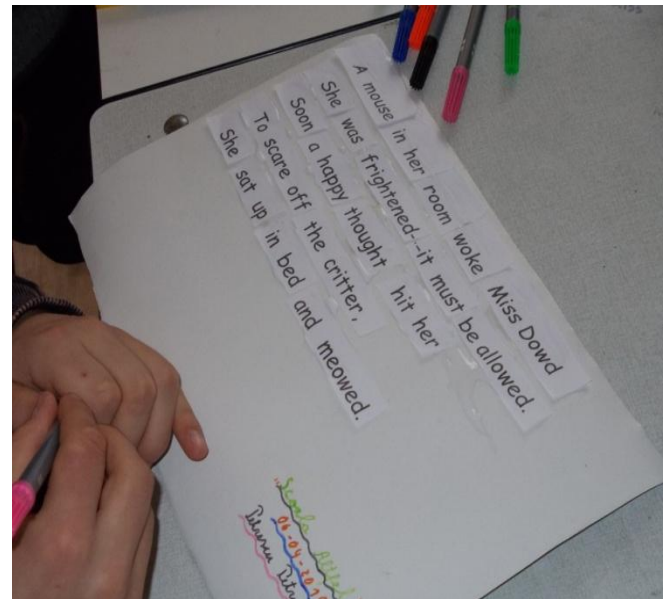 A mouse in her room woke Miss Dowd
She was frightened--it must be allowed.
Soon a happy thought hit her
To scare off the critter,
She sat up in bed and meowed.
"Scoala
06-04-20
Petrescu